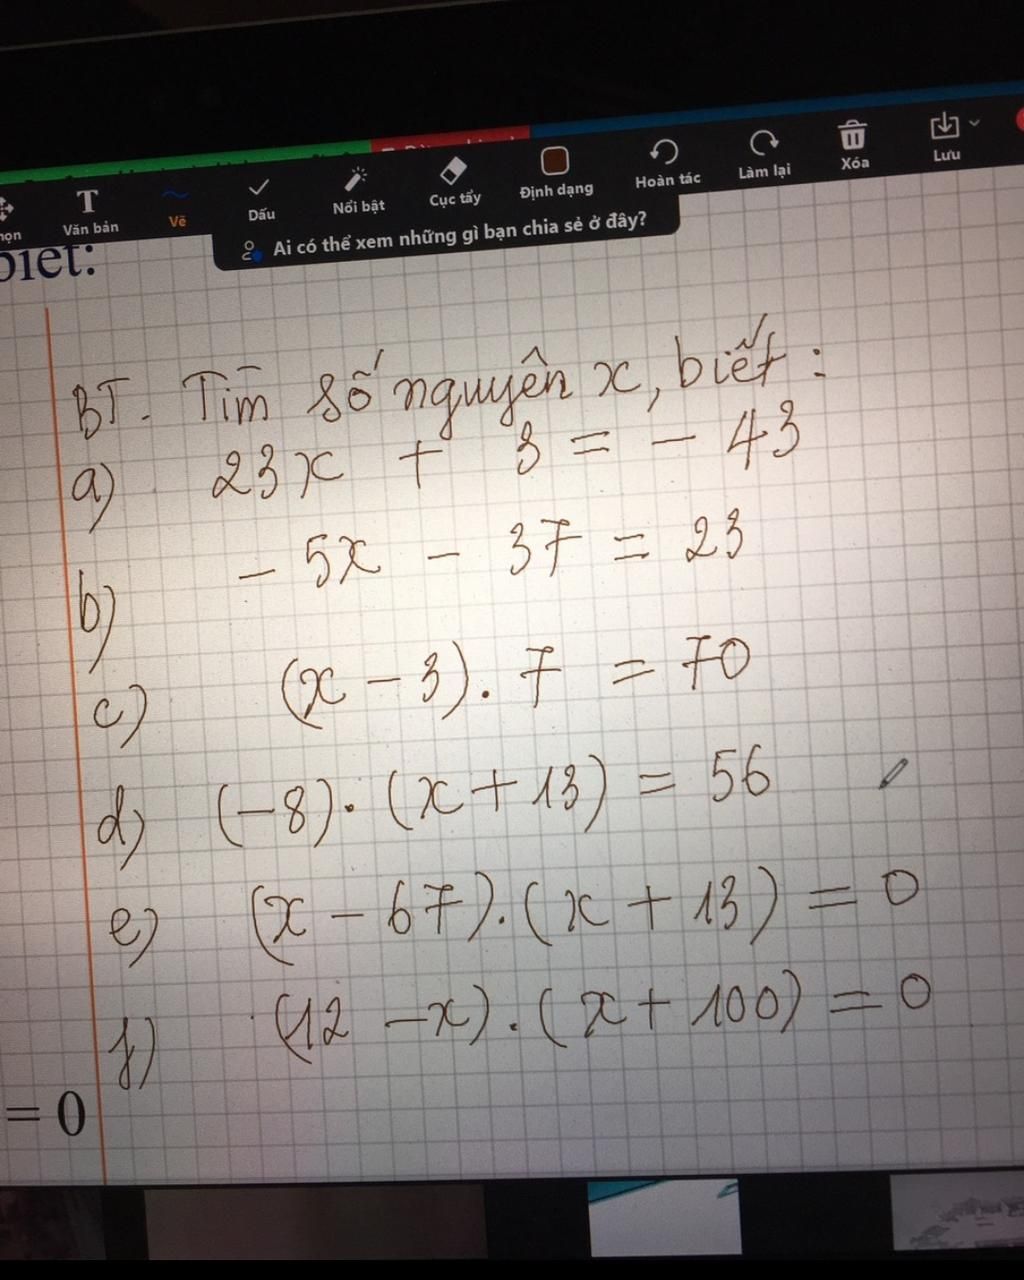 Văn bản
Vẽ
Dấu
Nổi bật
Cục tẩy
Định dạng
Hoàn tác
Làm lại
Xóa
Lưu
Ai có thể xem những gì bạn chia sẻ ở đây?
biết:
BT. Tìm số nguyên x, biết:
a) 23x + 3 = - 43
b) - 5x - 37 = 23
c) (x - 3). 7 = 70
d) (-8). (x + 13) = 56
e) (x - 67). (x + 13) = 0
f) (12 - x). (x + 100) = 0
= 0